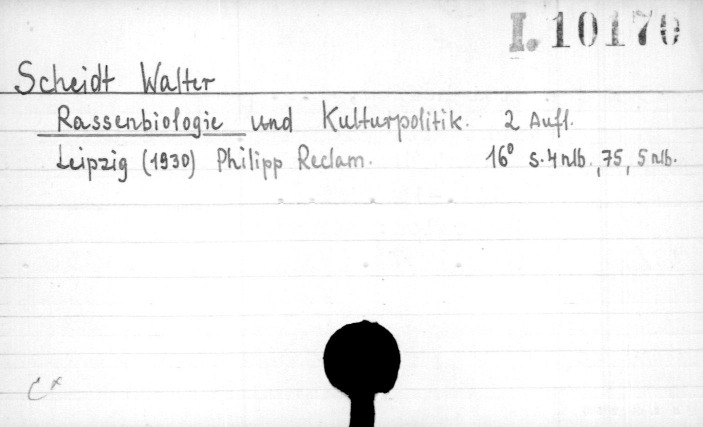 I. 10170
Scheidt Walter
Rassenbiologie und Kulturpolitik. 2 Aufl.
Leipzig (1930) Philipp Reclam. 16° S. 4 nlb., 75, 5 nlb.